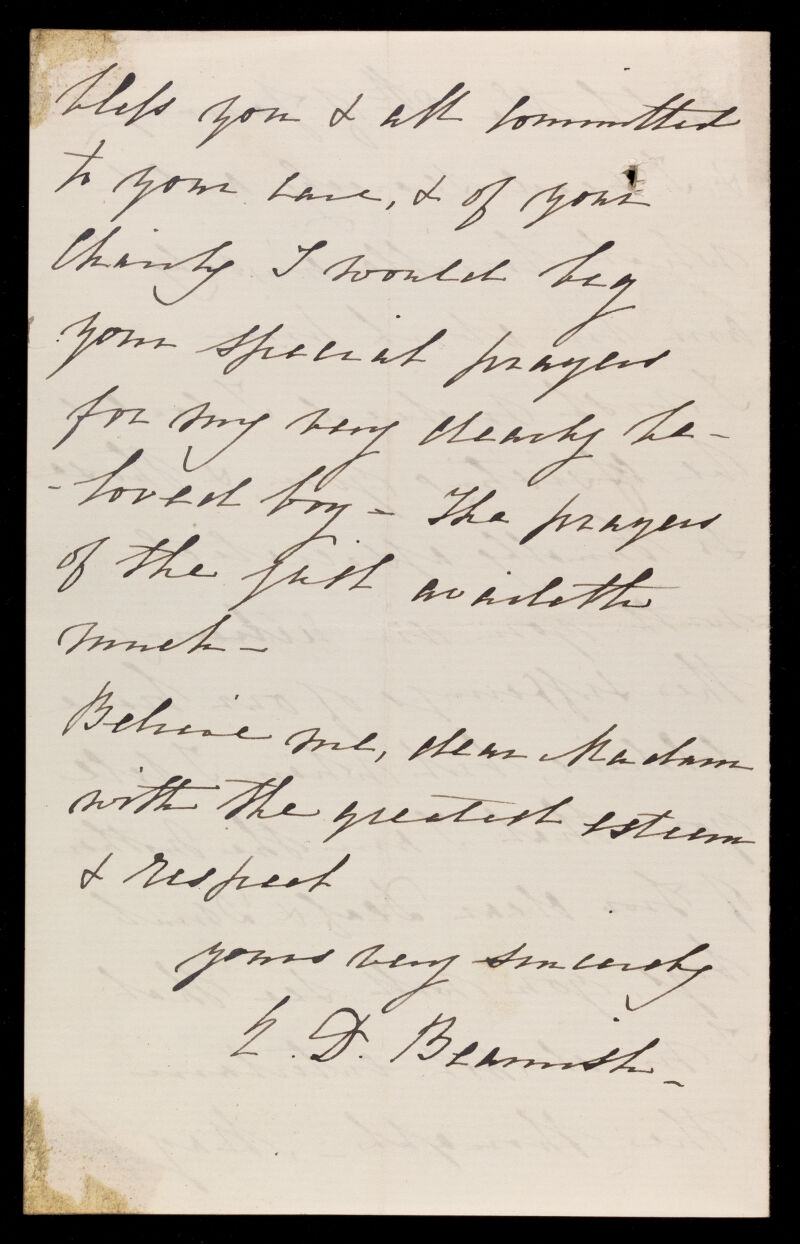 bless you & all committed
to your care, & of your
Charity I would beg
your special prayers
for my very dearly be-
-loved boy - The prayers
of the just availeth
much -
Believe me, dear Madam
with the greatest esteem
& respect
yours very sincerely
D. Beamish -